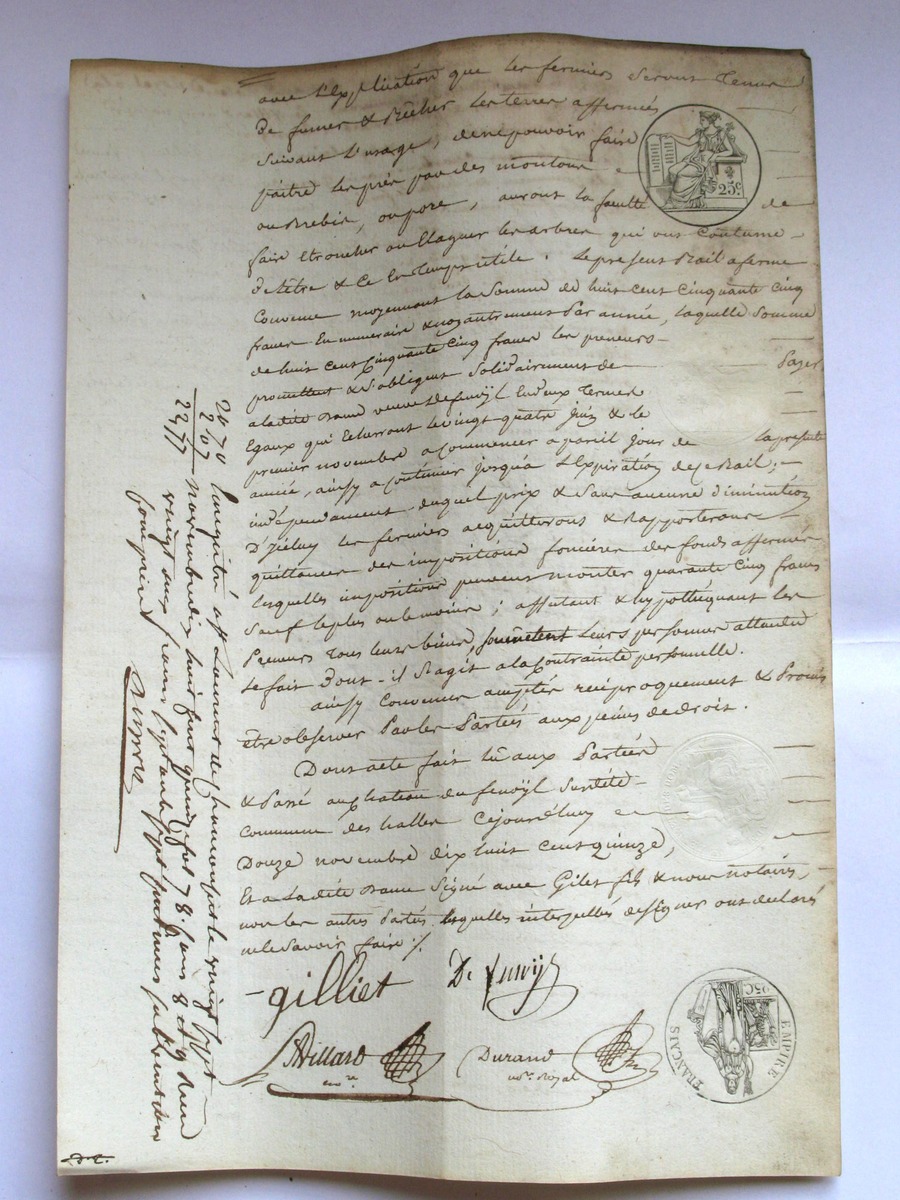 avec l'Explication que les fermiers seront Tenus
De fumer & Bêcher les terres affermés
suivant L'usage, de ne pouvoir faire
paitre les prés par des moutons
ou Brebis, ou porc, auront la faculté de
faire Etroncher ou Elaguer les arbres qui ont Coutume
De l'être & Ce En Temps utile. Le present Bail a ferme
Convenu moyennant la Somme de huit cent Cinquante Cinq
francs En numeraire & non autrement Par année, laquelle Somme
de huit cent Cinquante Cinq francs les preneurs
promettent & S'obligent Solidairement de Payer
a la dite Dame veuve En deux Termes
Egaux qui Echerront le vingt quatre Juin & le
premier novembre a Commencer a pareil jour de la présente
année, ainsy a Continuer jusqu'a l'Expiration de Ce Bail;
indépendament duquel prix & Sans aucune diminution
D'iceluy les fermiers acquitteront & Rapporterons
quittances des impositions foncières des fonds affermés
lesquelles impositions peuvent monter quarante Cinq francs
Sauf le plus ou le moins; affectant & hypothéquant les
Preneurs Tous leurs biens, soumettent leurs personnes attendu
le fait dont il S'agit a la Contrainte personnelle.
ainsy Convenu accepté réciproquement & Promis
être observer Par les Parties aux peines de droit.
Dont acte fait lû aux Parties
& Passé au chateau du fenoÿl Sur
Commune des halles Cejourd'huy
Douze novembre dix huit cent quinze,
Et a la dite Dame Signé avec Gilet fils & nous notaires,
non les autres Parties lesquelles interpellés de Signer ont declaré
ne le Savoir faire ./.
gilliet
De
Villard
nore
Durand
nore Royal
25c
EMPIRE FRANÇAIS
25C
20 70
2 07
22 77
Enregistré à St Laurent de le vingt Sept
novembre dix huit cent quinze fol 78
vingt deux francs Soixante dix Sept centimes Subvention
comprise